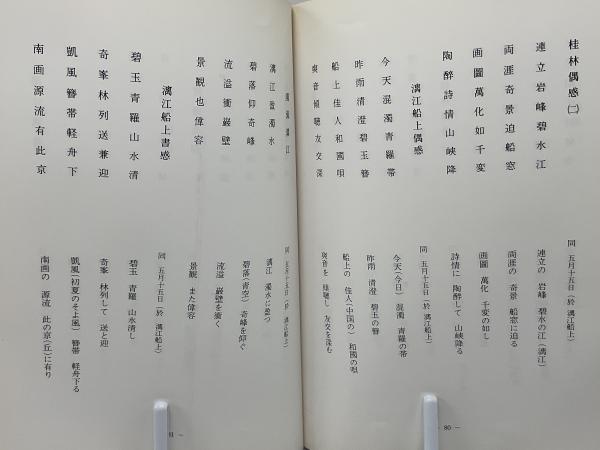 桂林偶感(二)
同 五月十五日(於 漓江船上)
連立岩峰碧水江
連立の 岩峰 碧水の江(漓江)
両涯奇景迫船窓
両涯の 奇景 船窓に迫る
画圖萬化如千変
画圖 萬化 千変の如し
陶酔詩情山峡降
詩情に 陶酔して 山峡降る
漓江船上偶感
同 五月十五日(於 漓江船上)
今天混濁青羅帯
今天(今日) 混濁 青羅の帯
昨雨清澄碧玉簪
昨雨 清澄 碧玉の簪
船上佳人和國唄
船上の 佳人(中国の) 和國の唄
奥音傾聴友交深
奥音を 傾聴し 友交を深む
80
漓江
同 五月十五日(於 漓江船上)
漓江盈濁水
漓江 濁水に盈つ
碧落仰奇峰
碧落(青空) 奇峰を仰ぐ
流溢衝巌壁
流溢 巌壁を衝く
景観也偉容
景観 また偉容
漓江船上書感
同 五月十五日(於 漓江船上)
碧玉青羅山水清
碧玉 青羅 山水清し
奇峯林列送兼迎
奇峯 林列して 送と迎
凱風簪帯軽舟下
凱風(初夏のそよ風) 簪帯 軽舟下る
南画源流有此京
南画の 源流 此の京(丘)に有り
81